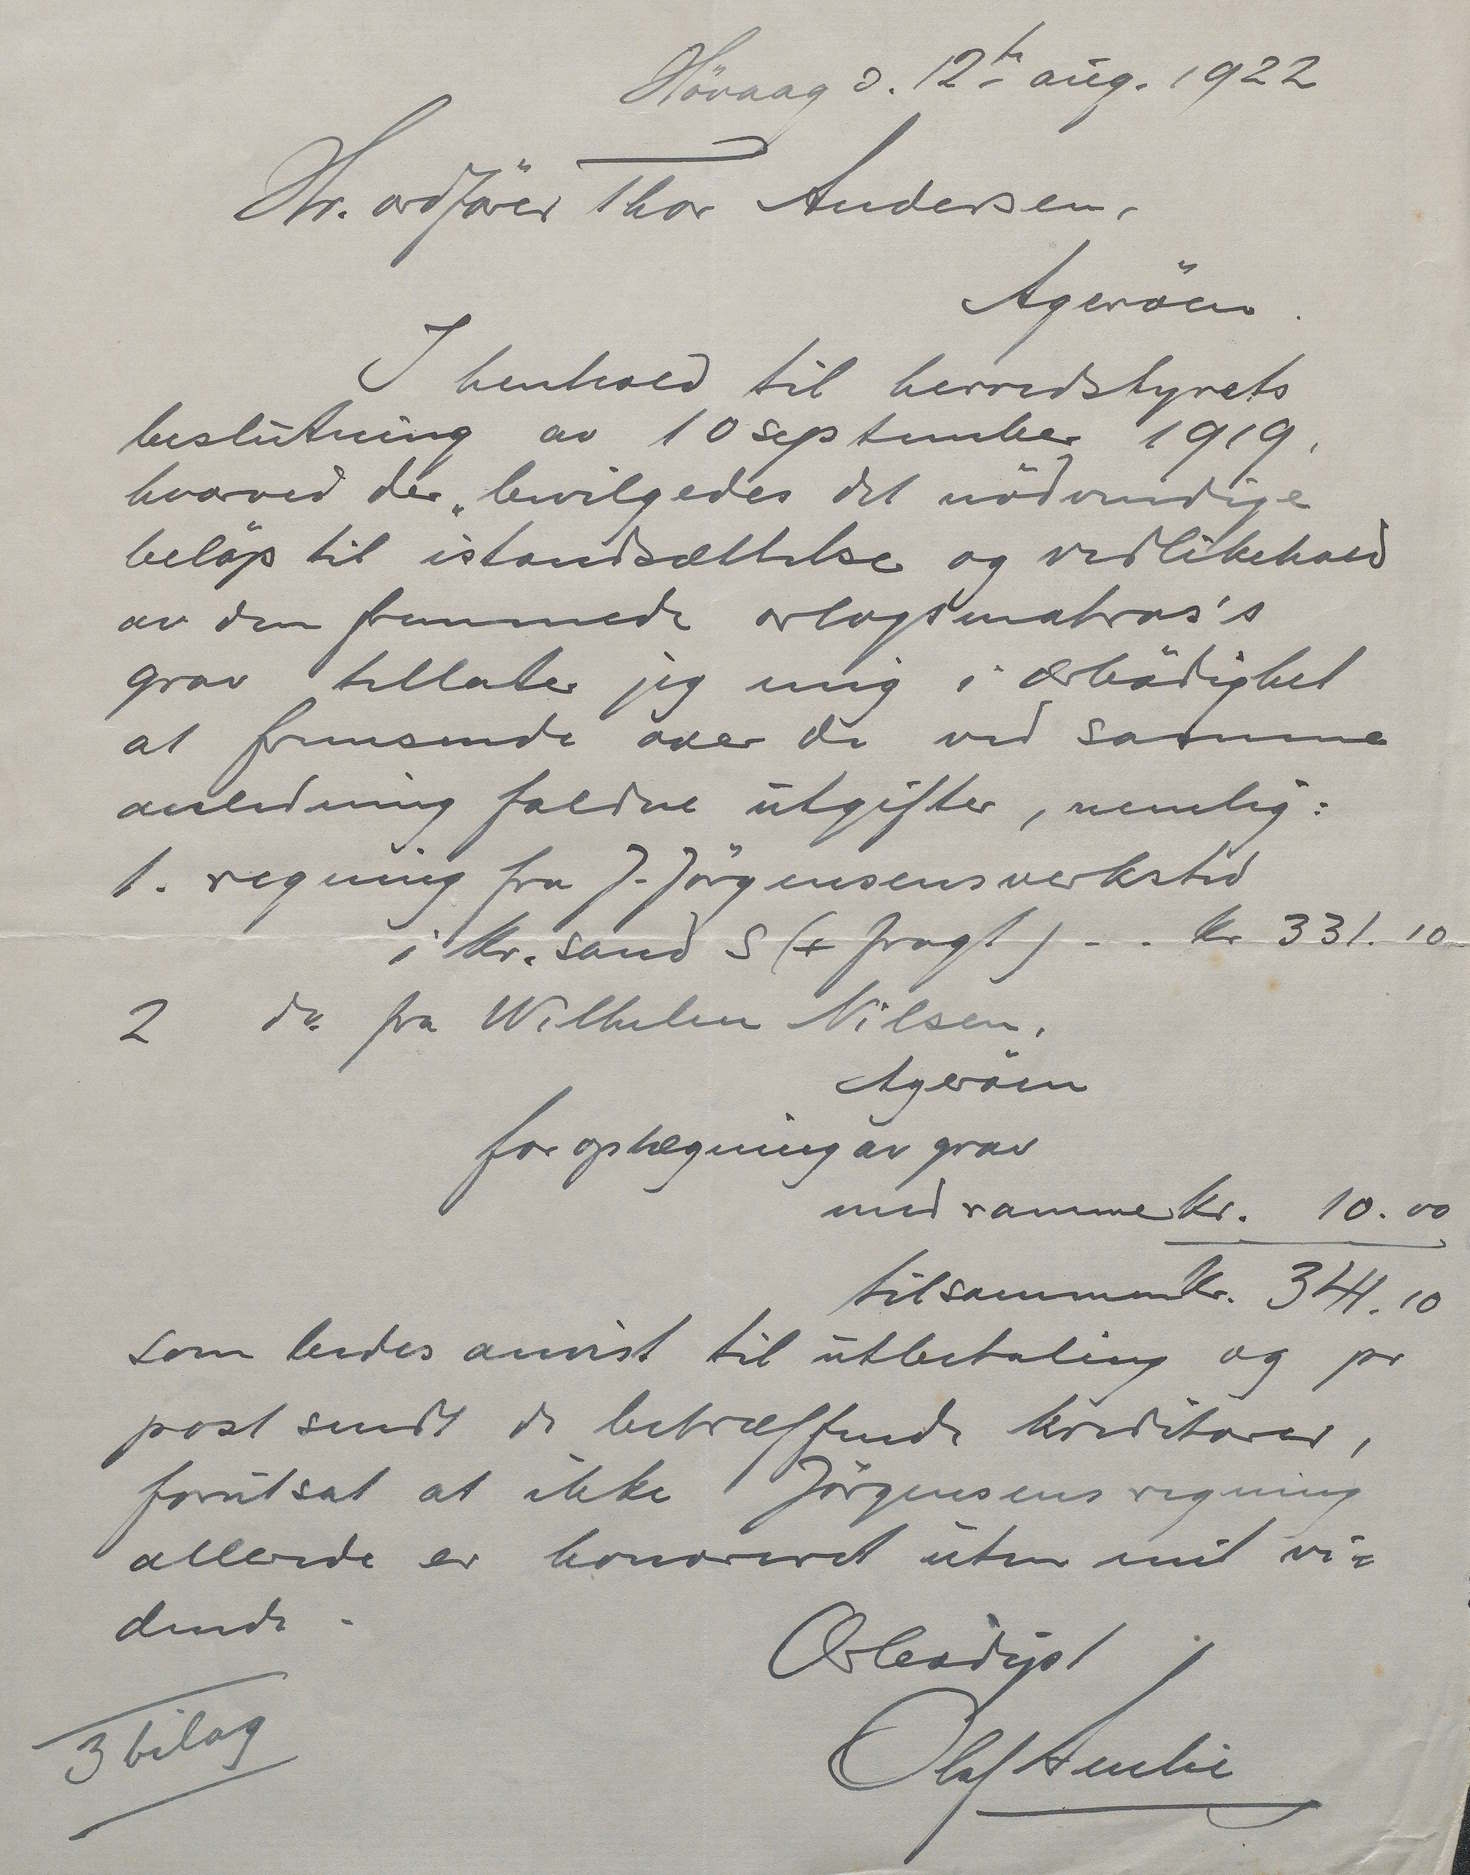 Hövaag d. 12te aug. 1922
Hr. ordförer Thor Andersen,
Ageröen.
I henhold til herredstyrets
beslutning av 10 september 1919,
hvorved der „bevilgedes det nödvendige
belöp til istandsættelse og vedlikehold
av den fremmede orlogsmatros's
grav tillater jeg mig i ærbödighet
at fremsende over de ved samme
anledning faldne utgifter, nemlig:
1. regning fra J. Jörgensens verksted
i Kr.sand S (+ fragt) - - kr 331.10
2 do. fra Wilhelm Nilsen,
Ageröen
for oplægning av grav
med ramme kr. 10.00
tilsammen kr. 341.10
som bedes anvist til utbetaling og pr
post sendt de betræffende kreditorer,
forutsat at ikke Jörgensens regning
allerede er honoreret uten mit vi=
dende.
Ærbödigst
Olaf
3 bilag